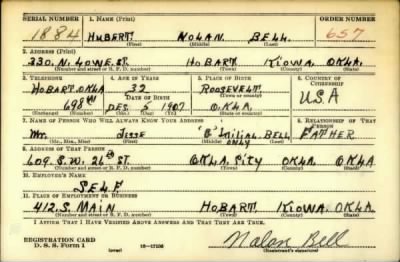 SERIAL NUMBER 1. NAME (Print) ORDER NUMBER
1884 HUBERT NOLAN BELL 657
(First) (Middle) (Last)
2. ADDRESS (Print)
330. N. LOWE. ST. HOBART KIOWA. OKLA.
(Number and street or R. F. D. number) (Town) (County) (State)
3. TELEPHONE 4. AGE IN YEARS 5. PLACE OF BIRTH 6. COUNTRY OF CITIZENSHIP
HOBART. OKLA 32 ROOSEVELT.
DATE OF BIRTH (Town or county) U.S.A
698W DEC. 5 1907 OKLA.
(Exchange) (Number) (Mo.) (Day) (Yr.) (State or country)
7. NAME OF PERSON WHO WILL ALWAYS KNOW YOUR ADDRESS 8. RELATIONSHIP OF THAT PERSON
Mr. JESSE "B" INITIAL. BELL FATHER
ONLY
(Mr., Mrs., Miss) (First) (Middle) (Last)
9. ADDRESS OF THAT PERSON
609. S.W. 26th ST. OKLA. CITY OKLA. OKLA
(Number and street or R. F. D. number) (Town) (County) (State)
10. EMPLOYER'S NAME
SELF
11. PLACE OF EMPLOYMENT OR BUSINESS
412, S. MAIN HOBART. KIOWA. OKLA.
(Number and street or R. F. D. number) (Town) (County) (State)
I AFFIRM THAT I HAVE VERIFIED ABOVE ANSWERS AND THAT THEY ARE TRUE.
REGISTRATION CARD
D. S. S. Form 1 (over) 16-17105 Nolan Bell
(Registrant's signature)